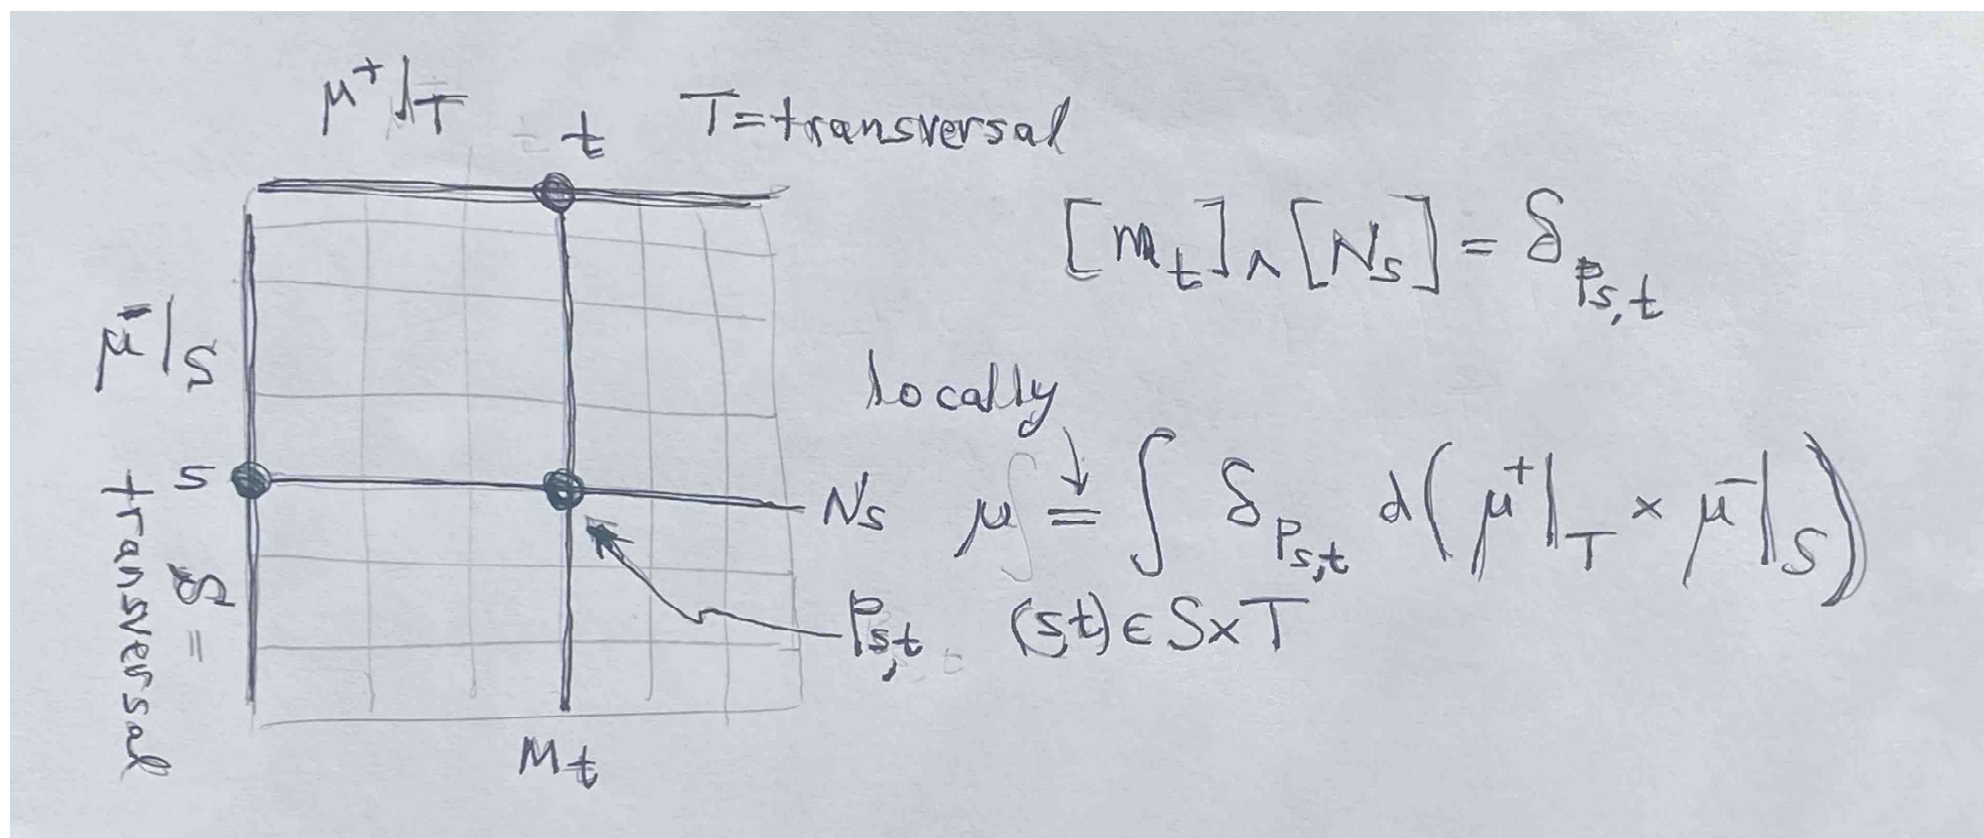 μ⁺|_T t T = transversal
[M_t] ∧ [N_s] = δ_{P_{s,t}}
μ⁻|_S
locally
s N_s μ = ∫ δ_{P_{s,t}} d(μ⁺|_T × μ⁻|_S)
S = transversal
P_{s,t} (s,t) ∈ S×T
M_t